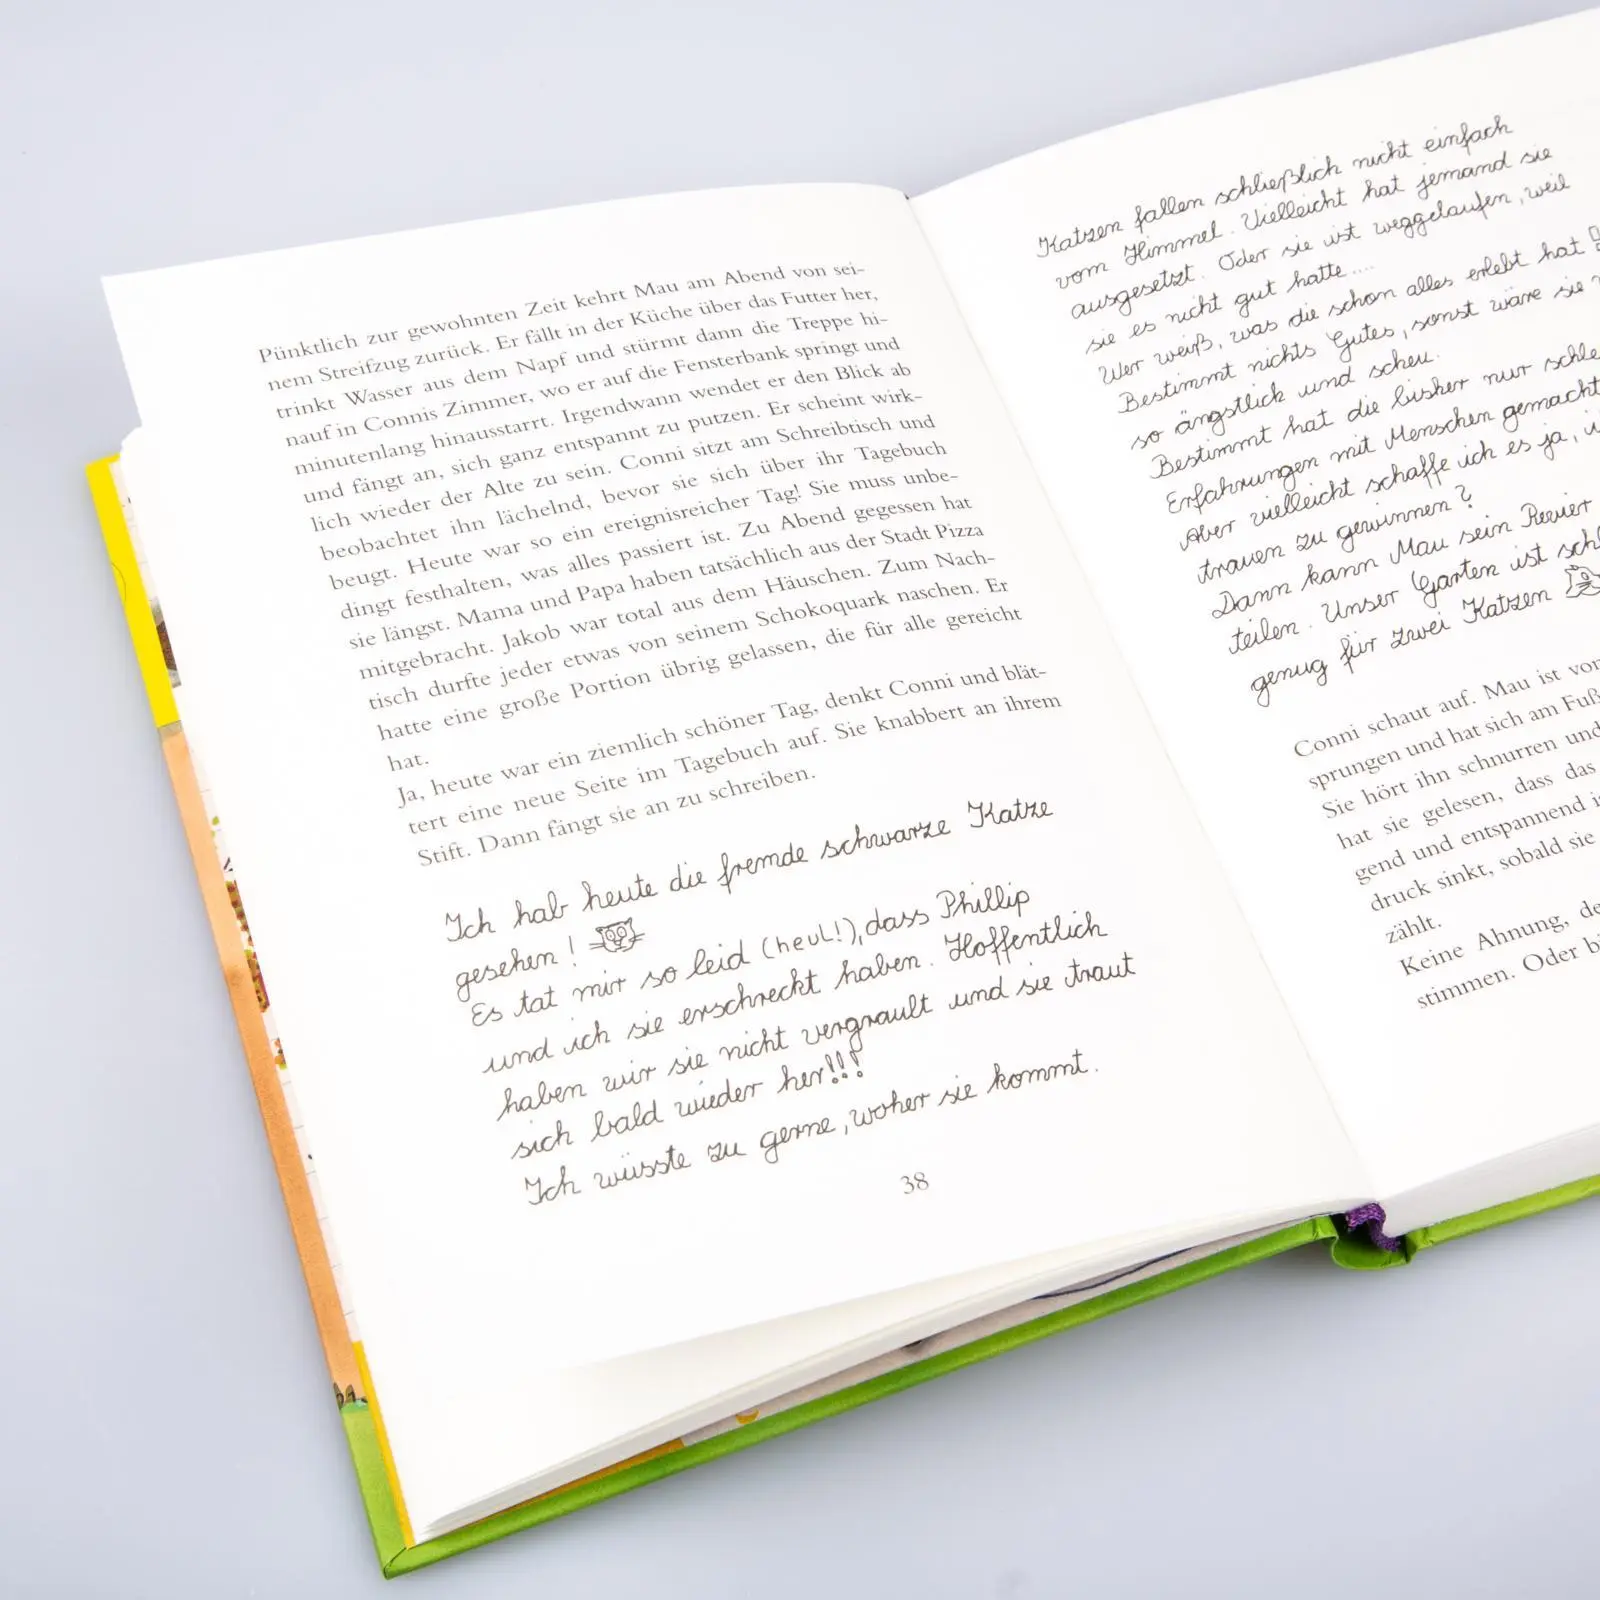 Pünktlich zur gewohnten Zeit kehrt Mau am Abend von sei-
nem Streifzug zurück. Er fällt in der Küche über das Futter her,
trinkt Wasser aus dem Napf und stürmt dann die Treppe hi-
nauf in Connis Zimmer, wo er auf die Fensterbank springt und
minutenlang hinausstarrt. Irgendwann wendet er den Blick ab
und fängt an, sich ganz entspannt zu putzen. Er scheint wirk-
lich wieder der Alte zu sein. Conni sitzt am Schreibtisch und
beobachtet ihn lächelnd, bevor sie sich über ihr Tagebuch
beugt. Heute war so ein ereignisreicher Tag! Sie muss unbe-
dingt festhalten, was alles passiert ist. Zu Abend gegessen hat
sie längst. Mama und Papa haben tatsächlich aus der Stadt Pizza
mitgebracht. Jakob war total aus dem Häuschen. Zum Nach-
tisch durfte jeder etwas von seinem Schokoquark naschen. Er
hatte eine große Portion übrig gelassen, die für alle gereicht
hat.
Ja, heute war ein ziemlich schöner Tag, denkt Conni und blät-
tert eine neue Seite im Tagebuch auf. Sie knabbert an ihrem
Stift. Dann fängt sie an zu schreiben.
Ich hab heute die fremde schwarze Katze
gesehen!
Es tat mir so leid (heul!), dass Phillip
und ich sie erschreckt haben. Hoffentlich
haben wir sie nicht vergrault und sie traut
sich bald wieder her!!!
Ich wüsste zu gerne, woher sie kommt.
38
Katzen fallen schließlich nicht einfach
vom Himmel. Vielleicht hat jemand sie
ausgesetzt. Oder sie ist weggelaufen, weil
sie es nicht gut hatte....
Wer weiß, was die schon alles erlebt hat
Bestimmt nichts Gutes, sonst wäre sie
so ängstlich und scheu.
Bestimmt hat die bisher nur
Erfahrungen mit Menschen gemacht
Aber vielleicht schaffe ich es ja,
trauen zu gewinnen?
Dann kann Mau sein Revier
teilen. Unser Garten ist
genug für zwei Katzen
Conni schaut auf. Mau ist
sprungen und hat sich am
Sie hört ihn schnurren und
hat sie gelesen, dass das
gend und entspannend
druck sinkt, sobald sie
zählt.
Keine Ahnung,
stimmen. Oder